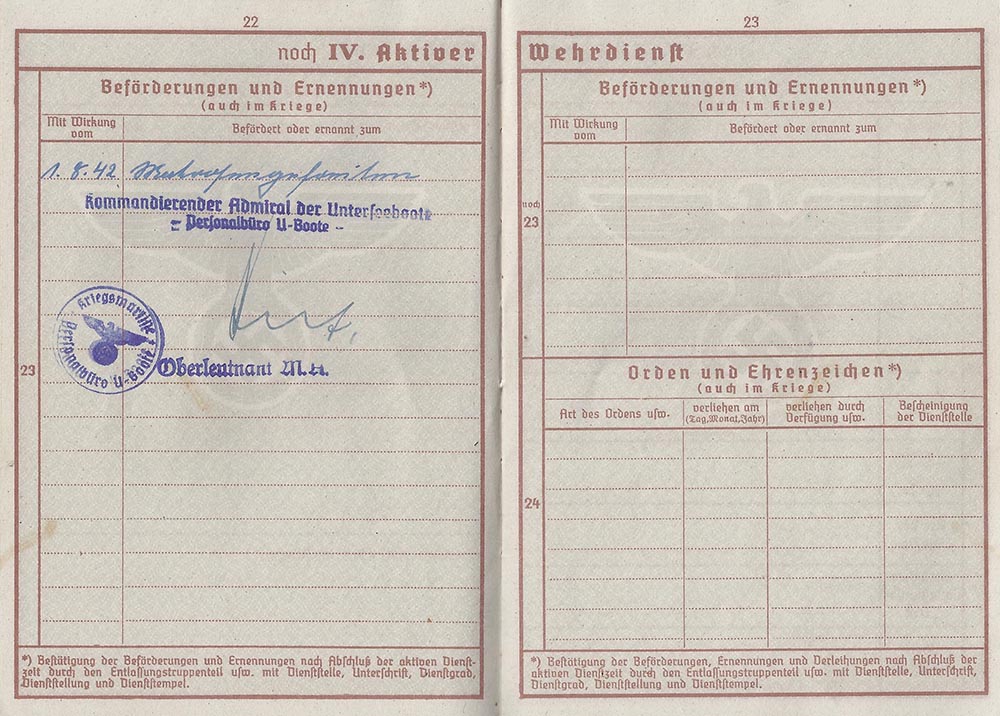 22
noch IV. Aktiver
Beförderungen und Ernennungen*)
(auch im Kriege)
Mit Wirkung
vom
Befördert oder ernannt zum
1.8.42 Matrosengefreiten
Kommandierender Admiral der Unterseeboote
– Personalbüro U-Boote –
Kriegsmarine * Personalbüro U-Boote
Oberleutnant M.A.
23
*) Bestätigung der Beförderungen und Ernennungen nach Abschluß der aktiven Dienst-
zeit durch den Entlassungstruppenteil usw. mit Dienststelle, Unterschrift, Dienstgrad,
Dienststellung und Dienststempel.
23
Wehrdienst
Beförderungen und Ernennungen*)
(auch im Kriege)
Mit Wirkung
vom
Befördert oder ernannt zum
noch
23
Orden und Ehrenzeichen*)
(auch im Kriege)
Art des Ordens usw.
verliehen am
(Tag,Monat,Jahr)
verliehen durch
Verfügung usw.
Bescheinigung
der Dienststelle
24
*) Bestätigung der Beförderungen, Ernennungen und Verleihungen nach Abschluß der
aktiven Dienstzeit durch den Entlassungstruppenteil usw. mit Dienststelle, Unterschrift,
Dienstgrad, Dienststellung und Dienststempel.